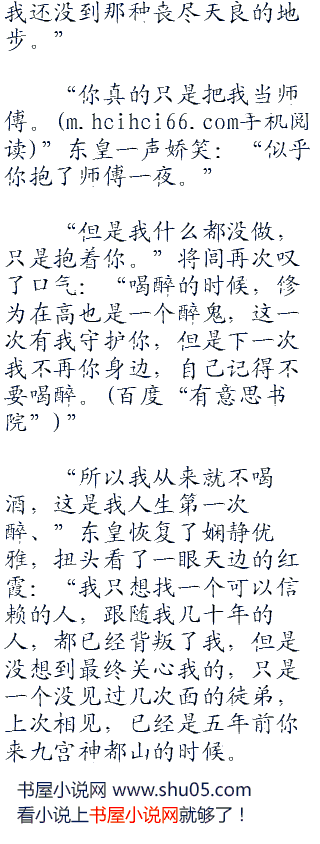 我还没到那种丧尽天良的地
步。”
“你真的只是把我当师
傅。(m.hcihci66.com手机阅
读)”东皇一声娇笑：“似乎
你抱了师傅一夜。”
“但是我什么都没做，
只是抱着你。”将闾再次叹
了口气：“喝醉的时候，修
为在高也是一个醉鬼，这一
次有我守护你，但是下一次
我不再你身边，自己记得不
要喝醉。(百度“有意思书
院”)”
“所以我从来就不喝
酒，这是我人生第一次
醉、”东皇恢复了娴静优
雅，扭头看了一眼天边的红
霞：“我只想找一个可以信
赖的人，跟随我几十年的
人，都已经背叛了我，但是
没想到最终关心我的，只是
一个没见过几次面的徒弟，
上次相见，已经是五年前你
来九宫神都山的时候。
书屋小说网 www.shu05.com
看小说上书屋小说网就够了！